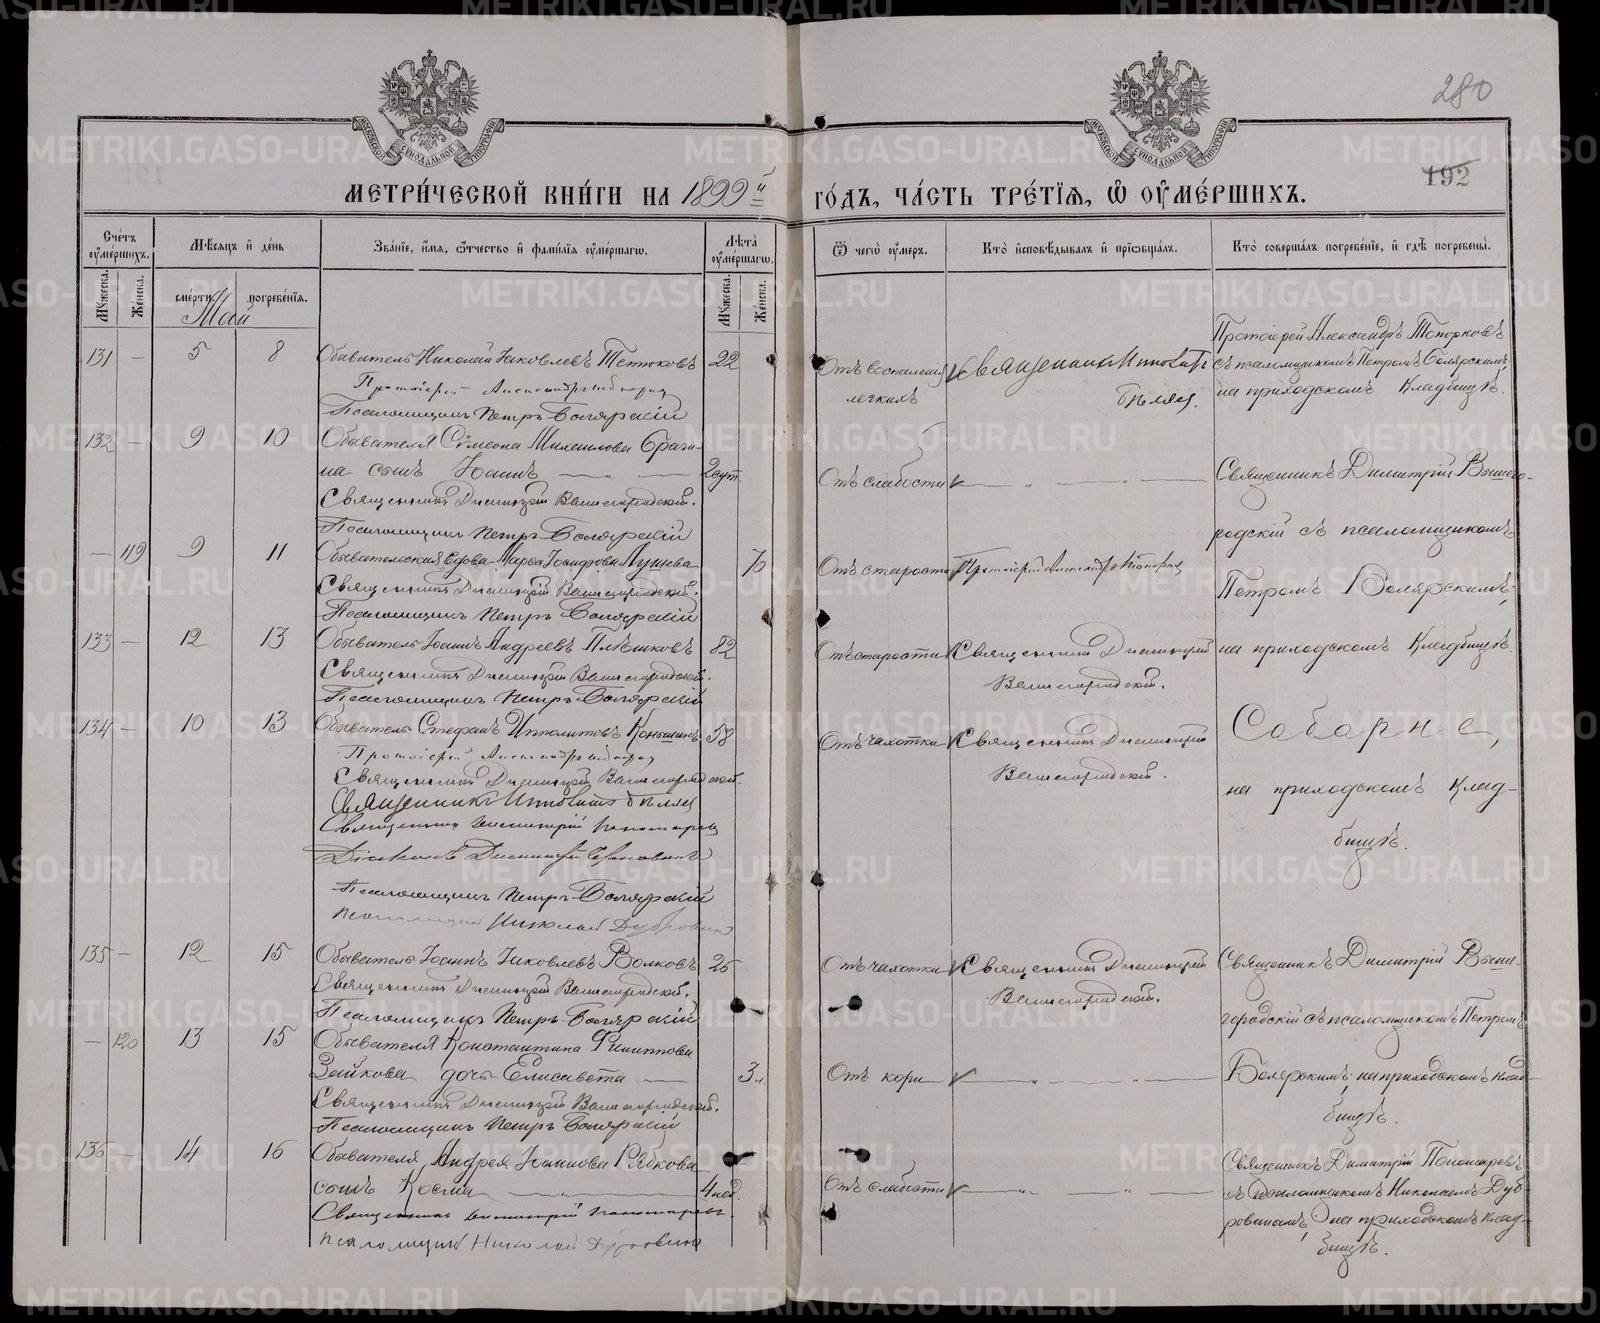 280
192
МЕТРИ́ЧЕСКОЙ КНИ́ГИ НА 1899й ГО́ДЪ, ЧА́СТЬ ТРЕ́ТІЯ, Ѡ ОУМЕ́РШИХЪ.
Сче́тъ оуме́ршихъ.
Мꙋжеска.
Же́нска.
Мѣсяцъ и де́нь
сме́рти.
погребе́нія.
Зва́ніе, и́мя, ѻтчество и фами́лія оуме́ршагѡ.
Лѣта̀ оуме́ршагѡ.
Мꙋжеска.
Же́нска.
Ѿ чегѡ̀ оу́меръ.
Кто̀ исповѣ́дывалъ и прїѡбща́лъ.
Кто̀ соверша́лъ погребе́ніе, и гдѣ̀ погребены̀.
Май
131 — 5 8 Обыватель Николай Іаковлевъ Тетюковъ 22
Псаломщикъ Петръ Болярскій
Отъ воспаленія
легкихъ
Священникъ Ипполитъ
Протоіерей Александръ Топорковъ
съ псаломщикомъ Петромъ Болярскимъ,
на приходскомъ кладбищѣ.
132 — 9 10 Обывателя Сѵмеона Михаилова Браги-
на сынъ Іоаннъ — „ — 2 сут.
Священникъ Димитрій Вышегородскій.
Псаломщикъ Петръ Болярскій
Отъ слабости — „ — „ —
Священникъ Димитрій Вышего-
родскій съ псаломщикомъ
— 119 9 11 Обывательская вдова Марѳа Іосифова Лущева 70
Священникъ Димитрій Вышегородскій.
Псаломщикъ Петръ Болярскій
Отъ старости Протоіерей Александръ Топорковъ
Петромъ Болярскимъ,
133 — 12 13 Обыватель Іоаннъ Андреевъ Плѣшковъ 82
Священникъ Димитрій Вышегородскій.
Псаломщикъ Петръ Болярскій
Отъ старости Священникъ Димитрій
Вышегородскій.
на приходскомъ кладбищѣ.
134 — 10 13 Обыватель Стефанъ Ипполитовъ Коньшинъ 58
Священникъ Димитрій Вышегородскій.
Священникъ Димитрій Пономаревъ
Псаломщикъ Петръ Болярскій
Псаломщикъ Николай Дубровинъ
Отъ чахотки Священникъ Димитрій
Вышегородскій.
Соборне,
на приходскомъ клад-
бищѣ.
135 — 12 15 Обыватель Іоаннъ Іаковлевъ Волковъ 25
Священникъ Димитрій Вышегородскій.
Псаломщикъ Петръ Болярскій
Отъ чахотки Священникъ Димитрій
Вышегородскій.
Священникъ Димитрій Выше-
городскій съ псаломщикомъ Петромъ
— 120 13 15 Обывателя Константина Филиппова
Зайкова дочь Елисавета — 3 л.
Священникъ Димитрій Вышегородскій.
Псаломщикъ Петръ Болярскій
Отъ кори — „ — „ —
Болярскимъ, на приходскомъ клад-
бищѣ.
136 — 14 16 Обывателя Андрея Іоаннова Рябкова
сынъ Косма — „ — 4 нед.
Священникъ Димитрій Пономаревъ.
Псаломщикъ Николай Дубровинъ
Отъ слабости — „ — „ —
Священникъ Димитрій Пономаревъ
съ псаломщикомъ Николаемъ Дуб-
ровинымъ, на приходскомъ клад-
бищѣ.
METRIKI.GASO-URAL.RU